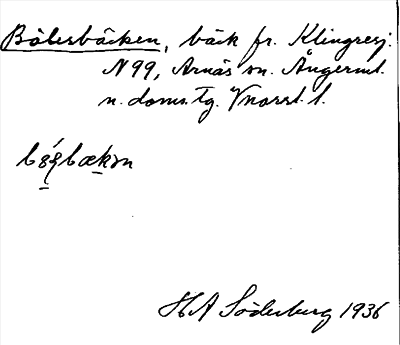 Bölesbäcken, bäck fr. Klingresj.
N99, Arnäs sn. Ångerml.
n. doms. Tg. Vnorrl. l.
H A Söderberg 1936